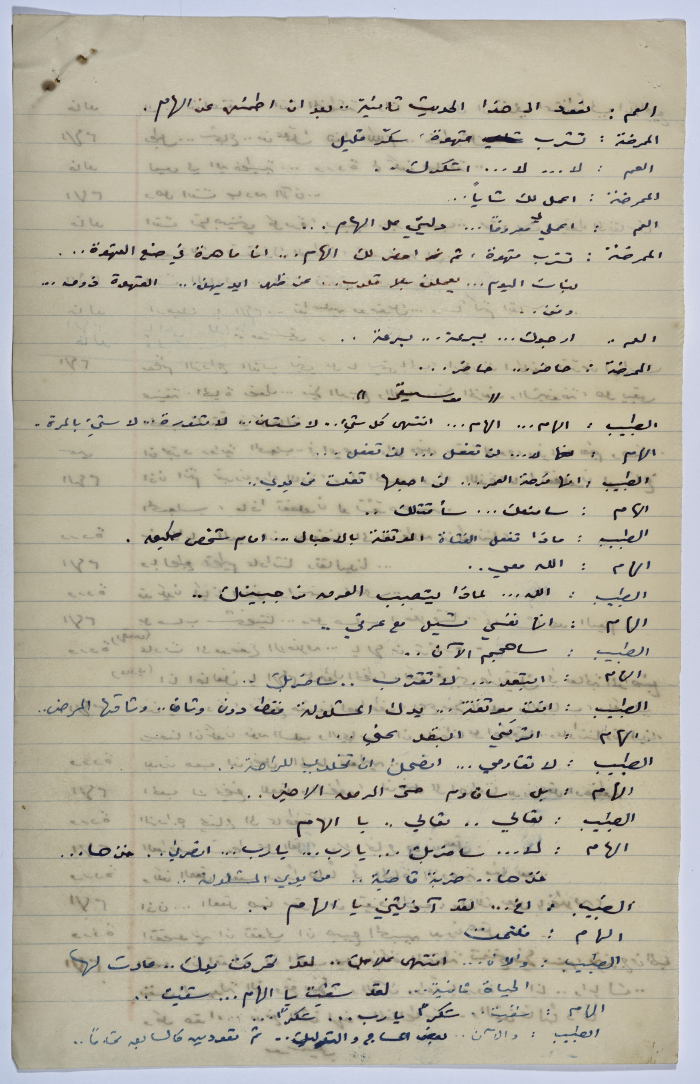 العم : لنعد الى هذا الحديث ثانية .. بعد ان اطمئن عن الهام .
الممرضة : تشرب قهوة ، سكر قليل
العم : لا ... لا ... اشكرك ..
الممرضة : اعمل لك شاياً ..
العم : اعملي لي معروفاً ... دليني على الهام ...
الممرضة : تشرب قهوة ، ثم احضر لك الهام ... انا ماهرة في صنع القهوة ...
بنات اليوم ... يعملن بلا قلوب ... عن ظهر ايديهن ... القهوة ذوق ...
وفن ..
العم .. ارجوك ... بسرعة .. بسرعة ..
الممرضة : حاضر ... حاضر ...
" موسيقى "
الطبيب : الهام ... الهام ... انتهى كل شيء .. لا فستان ... لا تنورة .. لا شيء بالمرة ..
الهام : لا ... لن تفعل ... لن تفعل ...
الطبيب : انها فرصة العمر ... لن اجعلها تفلت من يدي ..
الهام : سامنعك ... سأقتلك ..
الطبيب : ماذا تفعل الفتاة الموثقة بالاحبال ... امام شخص طليق .
الهام : الله معي ..
الطبيب : الله ... لماذا يتصبب العرق من جبينك ..
الهام : انها نفسي تسيل مع عرقي ..
الطبيب : ساهجم الآن ..
الهام : ابتعد ... لا تقترب .. ساضربك ..
الطبيب : انت موثقة ... يدك المشلولة فقط دون وثاق .. وثاقها المرض ..
الهام : اتركني ابتعد عني ..
الطبيب : لا تقاومي ... افضل ان تخلدي للراحة ..
الهام : بل ساقاوم حتى الرمق الاخير ..
الطبيب : تعالي .. تعالي .. يا الهام
الهام : لا ... ساضربك ... يارب ... يارب ... انصرني .. خذها ...
خذها .. ضربة قاضية .. من يدي المشلولة ..
الطبيب : اخ ... لقد آذيتني يا الهام ..
الهام :
الطبيب : والآن ... انتهى علاجك .. لقد تحركت يدك .. عادت لها
الحياة ثانية .. لقد شفيت يا الهام ... شفيت ..
الهام : شفيت .. شكراً يارب ... شكراً ...
الطبيب : والآن .. بعض المساج والتدليك .. ثم تعودين كالسابق تماماً ..